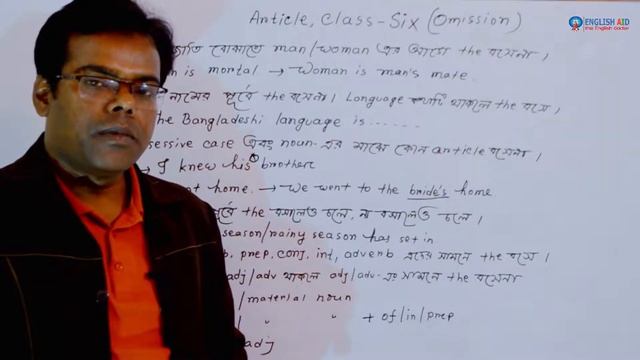 Article, Class-Six (Omission)
ENGLISH AID
the English doctor
জাতি বোঝাতে man/woman এর আগে the বসেনা।
is mortal → Woman is man's mate.
নামের পূর্বে the বসেনা। Language কথাটি থাকলে the বসে,
the Bangladeshi language is ......
sessive case এবং noun-এর মাঝে কোন article বসেনা।
→ I knew his brother
at home. → We went to the bride's home
পূর্বে the বসালেও চলে, না বসালেও চলে।
season/rainy season has set in
b, prep, conj, int, adverb এদের সামনে the বসে।
adj/adv থাকলে adj/adv-এর সামনে the বসেনা
/material noun
" " + of/in/prep
adj